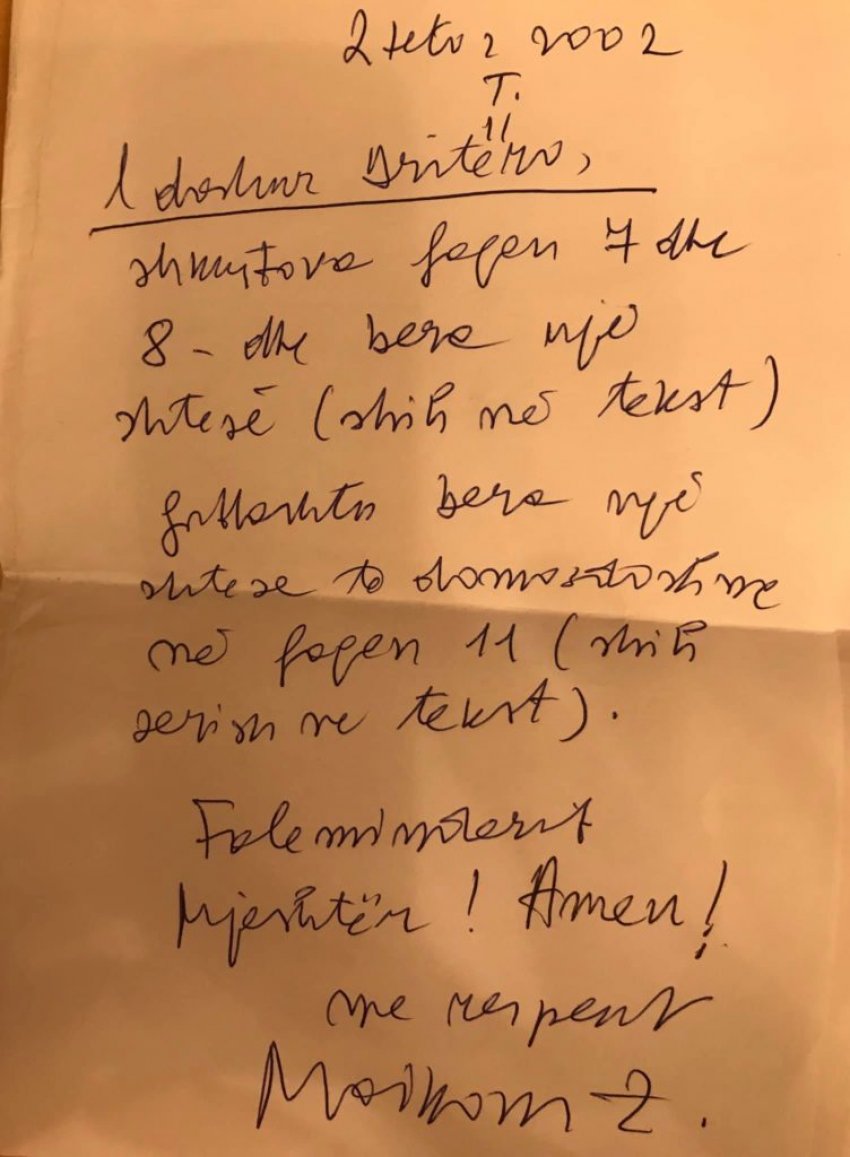 2 tetor 2002
T.
I dashur Dritëro,
shkurtova faqen 7 dhe
8 - dhe bera një
shtesë (shih në tekst)
gjithashtu bera një
shtese të domosdoshme
në faqen 11 (shih
serish ne tekst).
Faleminderit
Mjeshtër! Amen!
me respekt
Moikom Z.